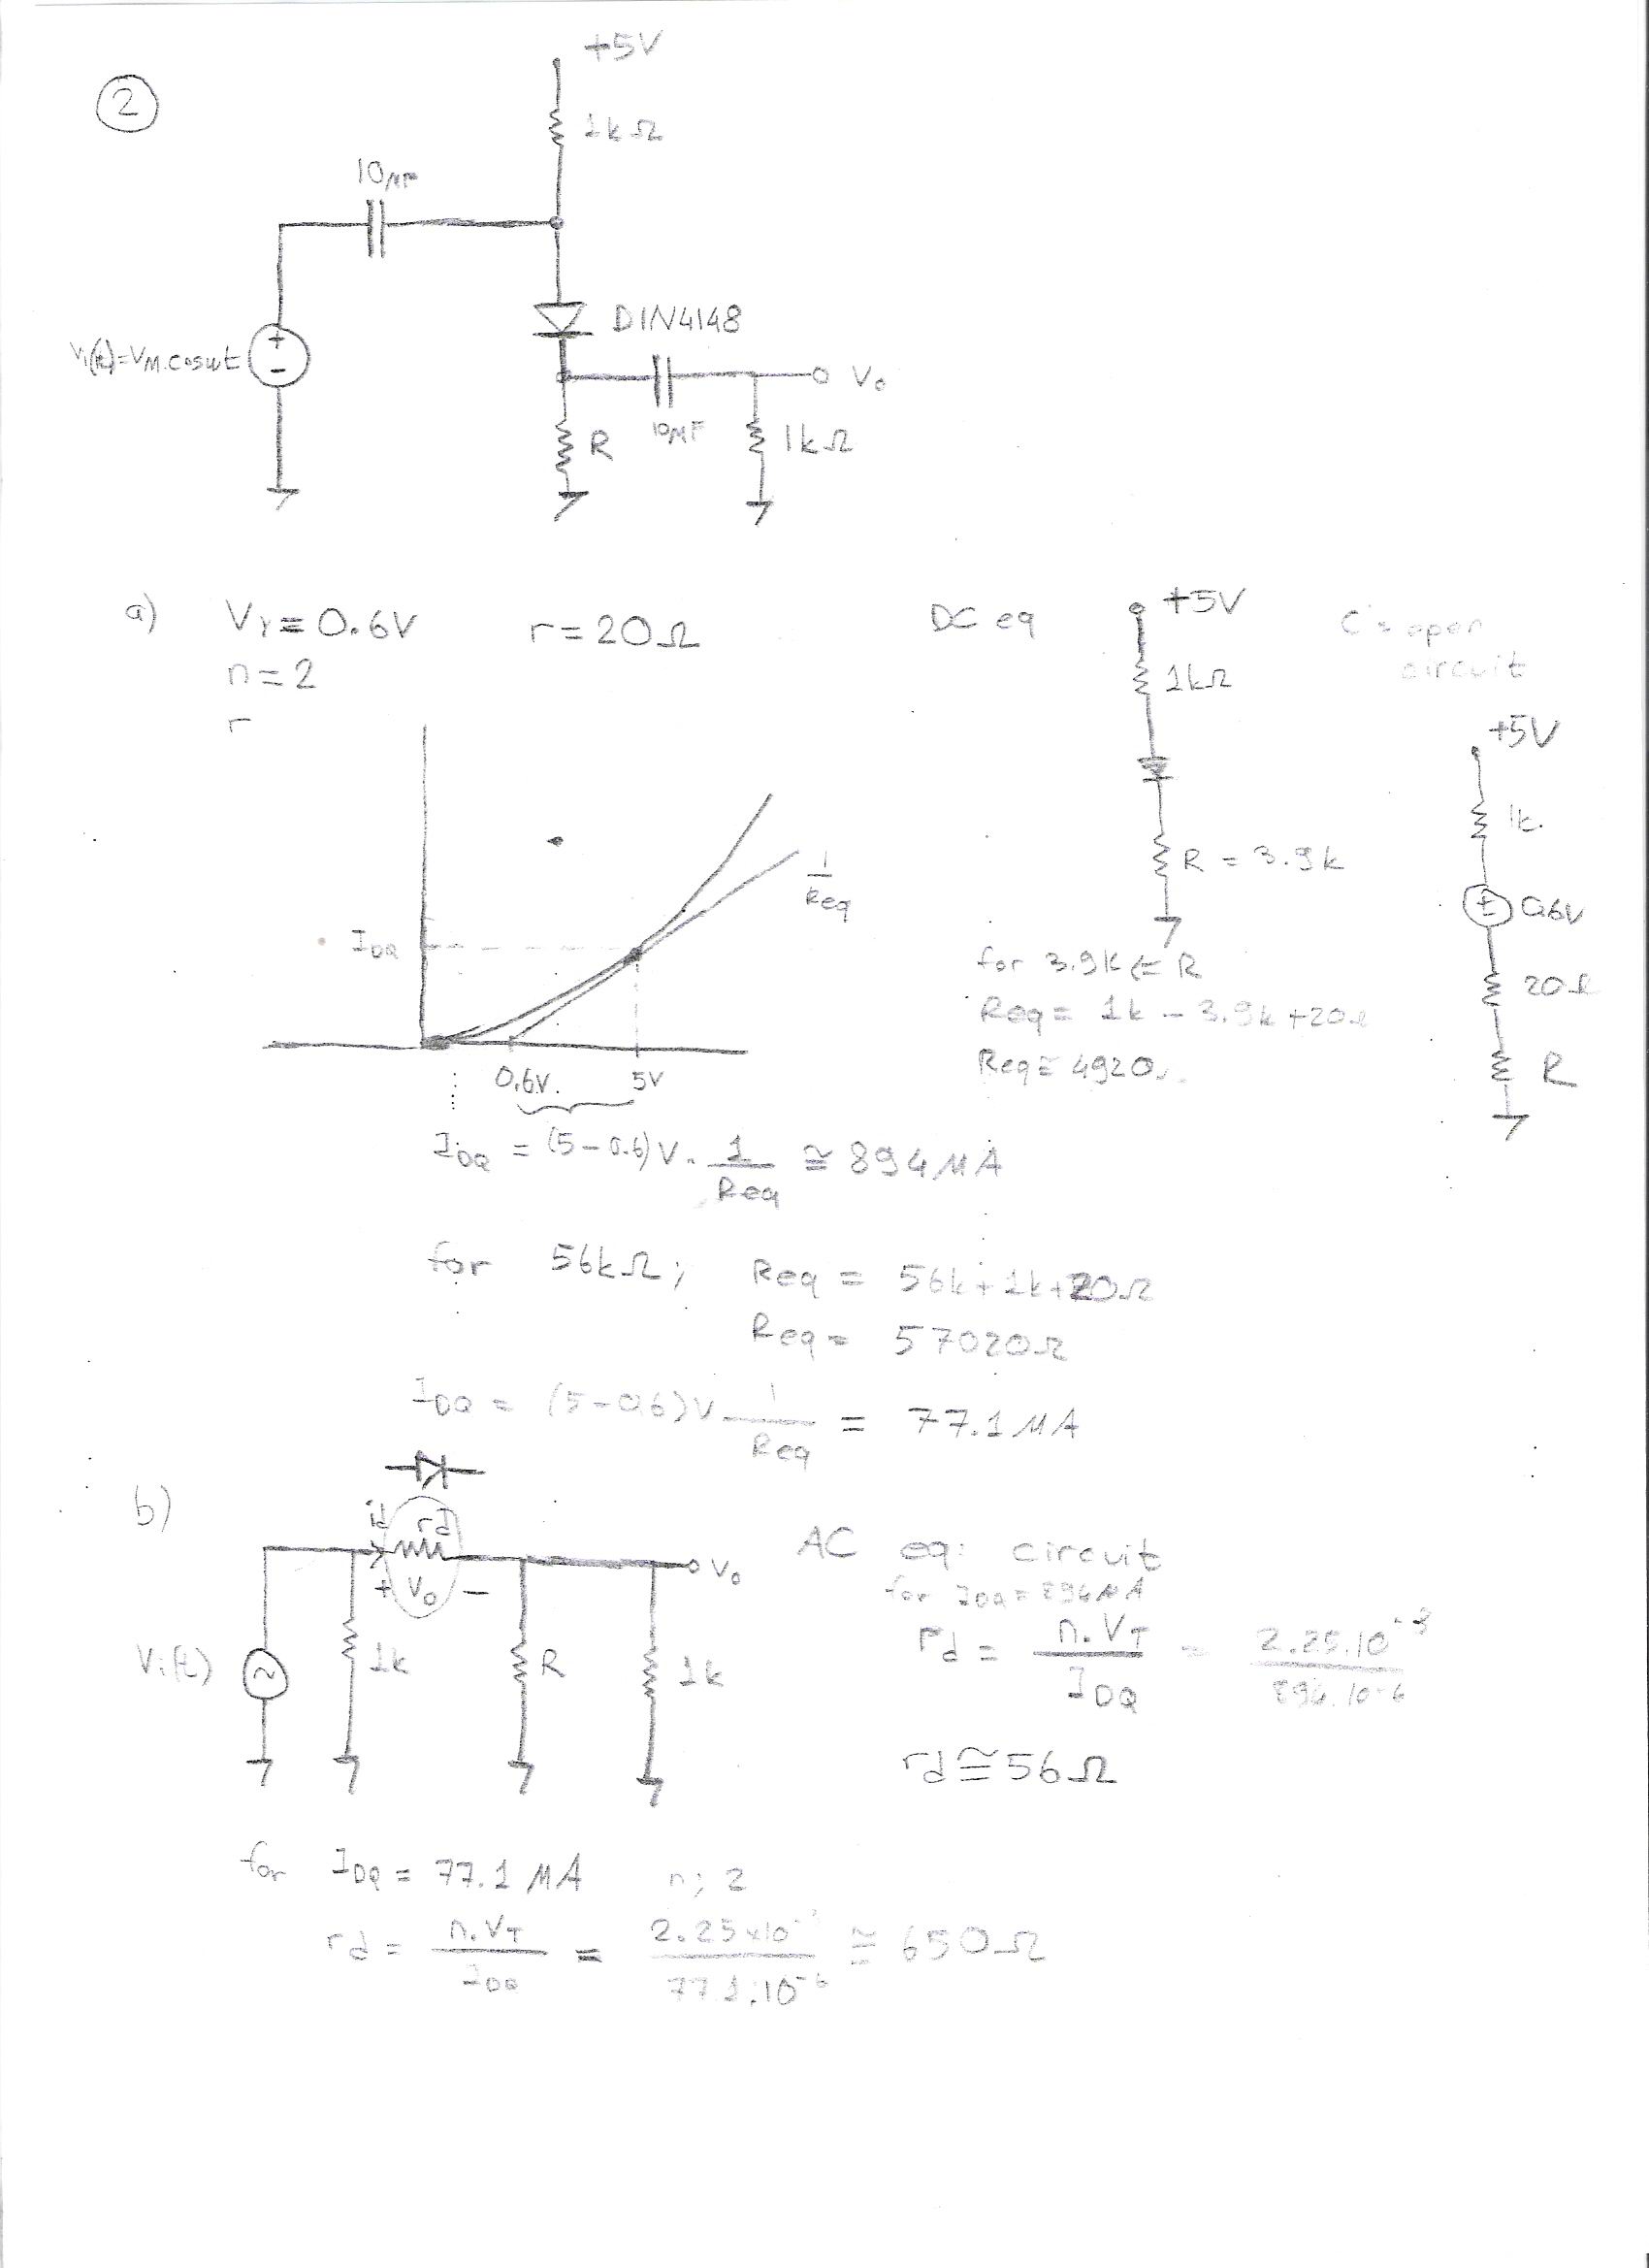 2
+5V
1kΩ
10µF
Vi(t)=VM.coswt
+
-
DIN4148
Vo
10µF
R
1kΩ
a) Vγ=0.6V r=20Ω
n=2
r
DC eq
+5V
C's open
circuit
1kΩ
R=3.9k
+5V
1k
+
0.6V
20Ω
R
1/Req
IDQ
0.6V. 5V
for 3.9k = R
Req = 1k - 3.9k +20Ω
Req ≅ 4920
IDQ = (5-0.6)V. 1/Req ≅ 894µA
for 56kΩ; Req = 56k+1k+20Ω
Req = 57020Ω
IDQ = (5-0.6)V 1/Req = 77.1µA
b)
id rd
+ Vo -
Vo
Vi(t)
1k
R
1k
AC eq: circuit
for IDQ = 894µA
rd = n.VT/IDQ = 2.25.10^-3/894.10^-6
rd≅56Ω
for IDQ = 77.1µA n; 2
rd = n.VT/IDQ = 2.25x10^-3/77.1.10^-6 ≅ 650Ω